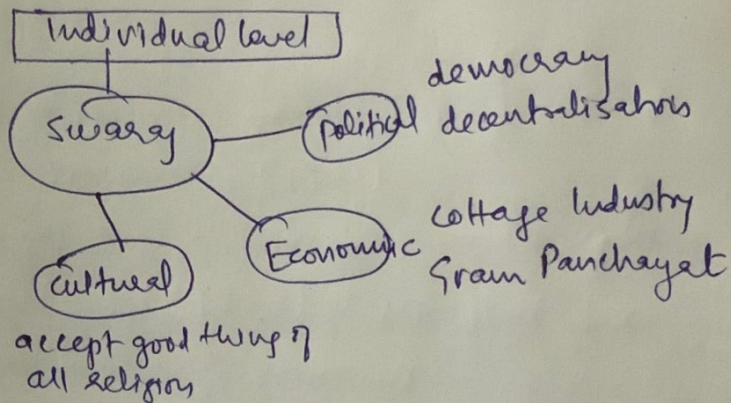 Individual level
Swaraj
political
democracy
decentralisations
Economic
Cottage Industry
Gram Panchayat
Cultural
accept good thing of
all religion